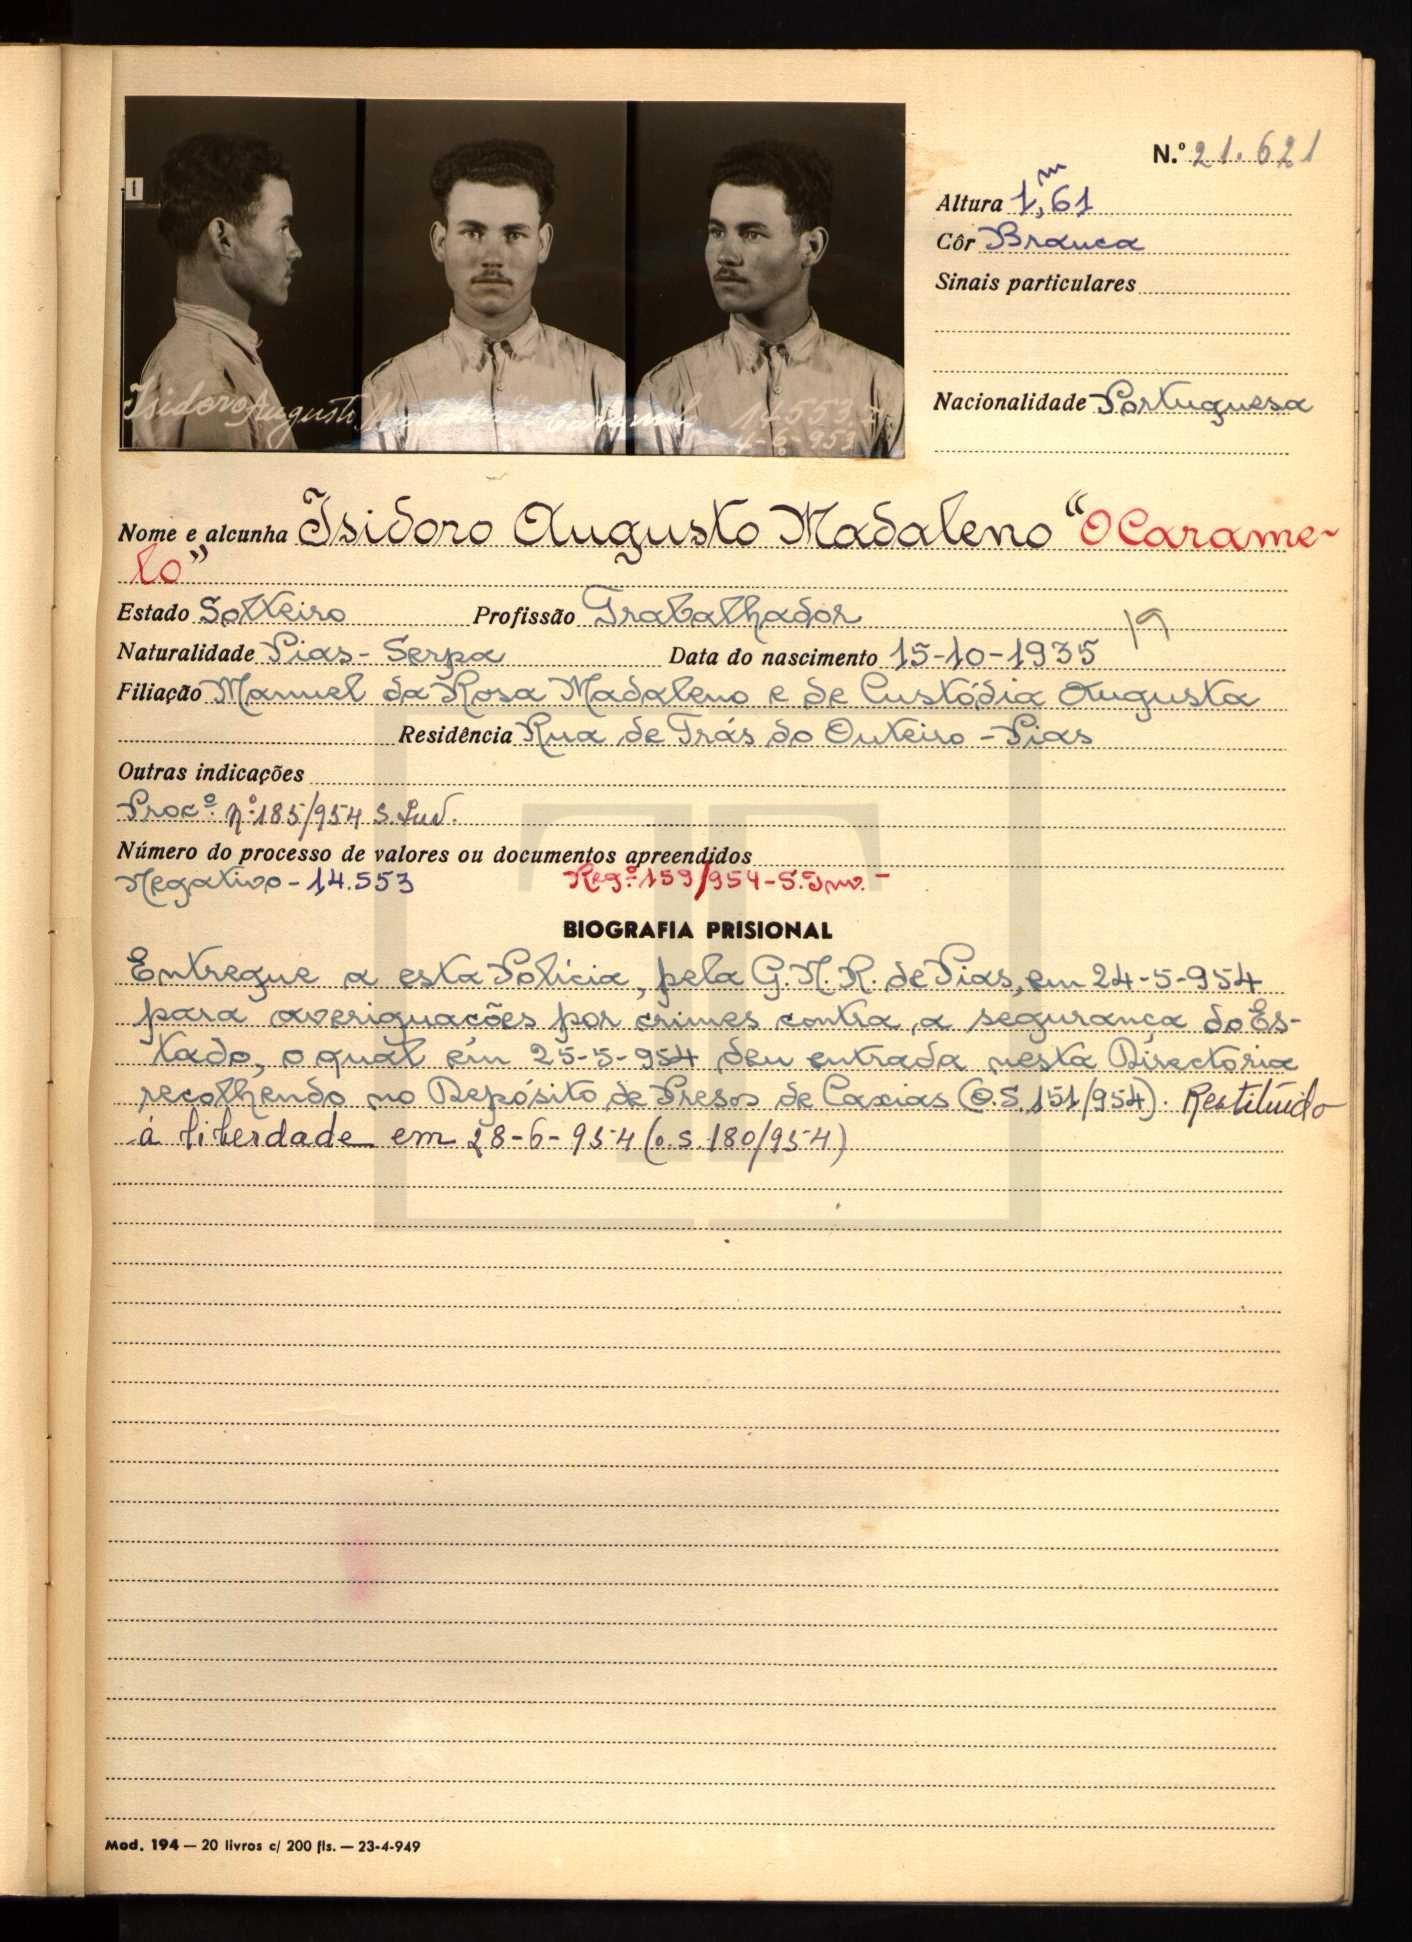 N.º 21.621
Altura 1,61 m
Côr Branca
Sinais particulares
Nacionalidade Portuguesa
1
Isidoro Augusto
14553
4-6-953
Nome e alcunha Isidoro Augusto Madaleno "O Carame-
lo"
Estado Solteiro Profissão Trabalhador
19
Naturalidade Pias - Serpa Data do nascimento 15-10-1935
Filiação Manuel da Rosa Madaleno e de Custódia Augusta
Residência Rua de Trás do Outeiro - Pias
Outras indicações
Procº. nº 185/954 S.
Número do processo de valores ou documentos apreendidos
Negativo - 14.553 Regº 159/954 - S. Inv. -
BIOGRAFIA PRISIONAL
Entregue a esta Polícia, pela G.N.R. de Pias, em 24-5-954
para averiguações por crimes contra a segurança do Es-
tado, o qual em 25-5-954 deu entrada nesta Directoria
recolhendo no Depósito de Presos de Caxias (O.S. 151/954). Restituído
à liberdade em 28-6-954 (o.s. 180/954)
Mod. 194 — 20 livros c/ 200 fls. — 23-4-949